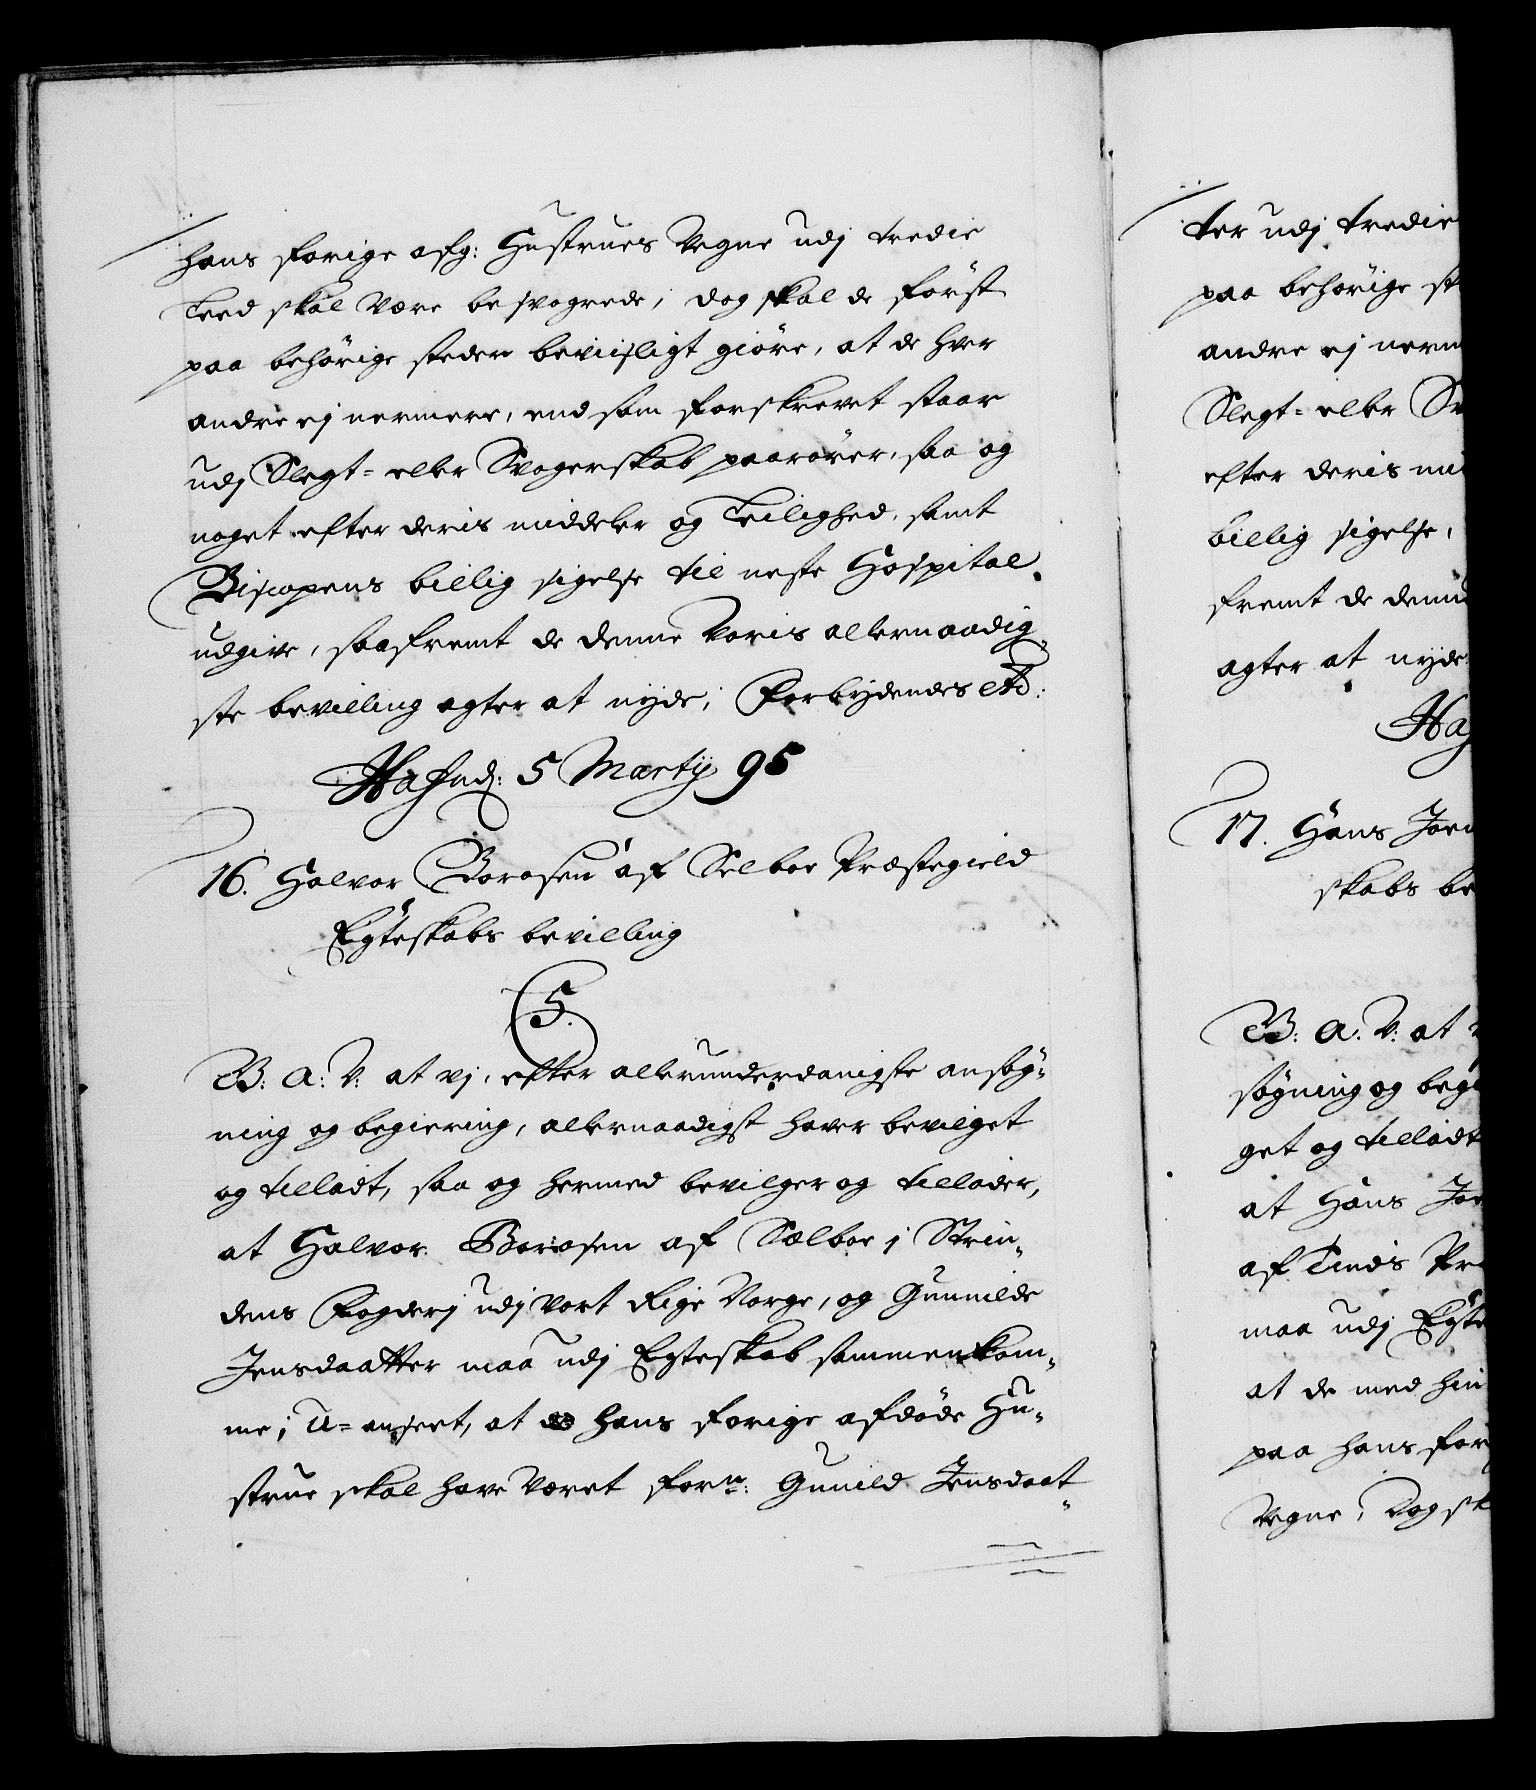 hans forige afg: Hustrues Vegne udj tredie
Leed skal være besvogrede, dog skal de först
paa behörige steder beviisligt giöre, at de hver
andre ej nermere, end som forskrevet staar
udj Slegt= eller Svogerskab paarörer, saa og
noget efter deris middeler og Leilighed, samt
Biscopens billig sigelse til neste Hospital
udgive, saafremt de denne Voris allernaadig-
ste bevilling agter at nyde; Forbydendes etc:
Hafnæ: 5 Martij 95
16. Halvor Borosen af Selboe Præstegield
Egteskabs bevilling
5.
B: A: V: at vj, efter allerunderdanigste ansög=
ning og begiering, allernaadigst haver bevilget
og tilladt, saa og hermed bevilger og tillader,
at Halvor Borosen af Sælboe j Strin-
dens Fogderj udj vort Rige Norge, og Gunnilde
Jensdaatter maa udj Egteskab sammenkom-
me; U=anseet, at hans forige afdöde Hu-
strue skal have været forn: Gunild Jensdaat-
ter udj tredie
paa behörige st
andre ej nerm
Slegt= eller Sv
efter deris mi
billig sigelse,
fremt de denn
agter at nyde
Haf
17. Hans Joen
skabs be
B: A: V: at
søgning og begi
get og tilladt
at Hans Joe
af Tinds Præ
maa udj Egte
at de med hin
paa hans for
Vegne, Dog sk